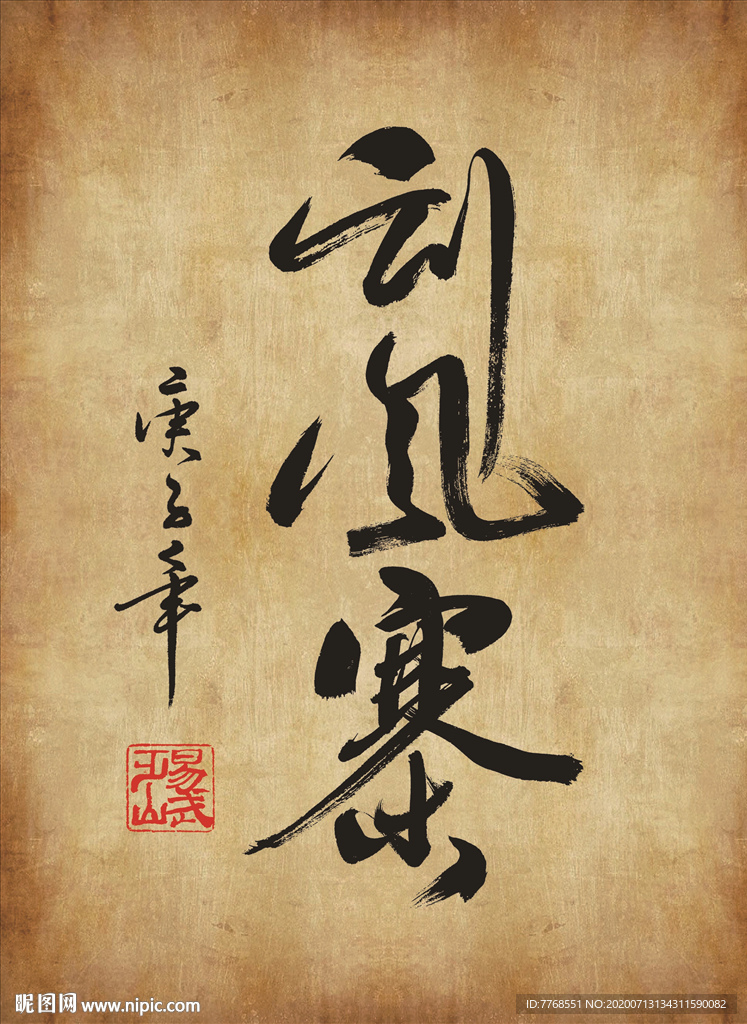 刮风寨
庚子年
昵图网 www.nipic.com
ID:7768551 NO:20200713134311590082